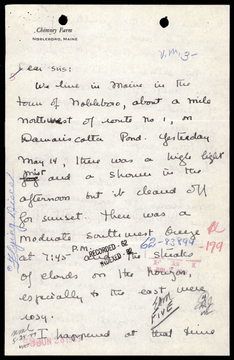 Chimney Farm
Nobleboro, Maine
V.M. 3-
Dear sirs:
We live in Maine in the
town of Nobleboro, about a mile
northwest of route no 1, on
Damariscotta Pond. Yesterday
May 14, there was a high light
mist and a shower in the
afternoon but it cleared off
for sunset. There was a
moderate southwest breeze
at 7:45 P.M. and the streaks
of clouds on the horizon,
especially to the east were
rosy.
I happened at that time
RECORDED - 62
INDEXED - 62
62-83894
-179
SAM
FIVE